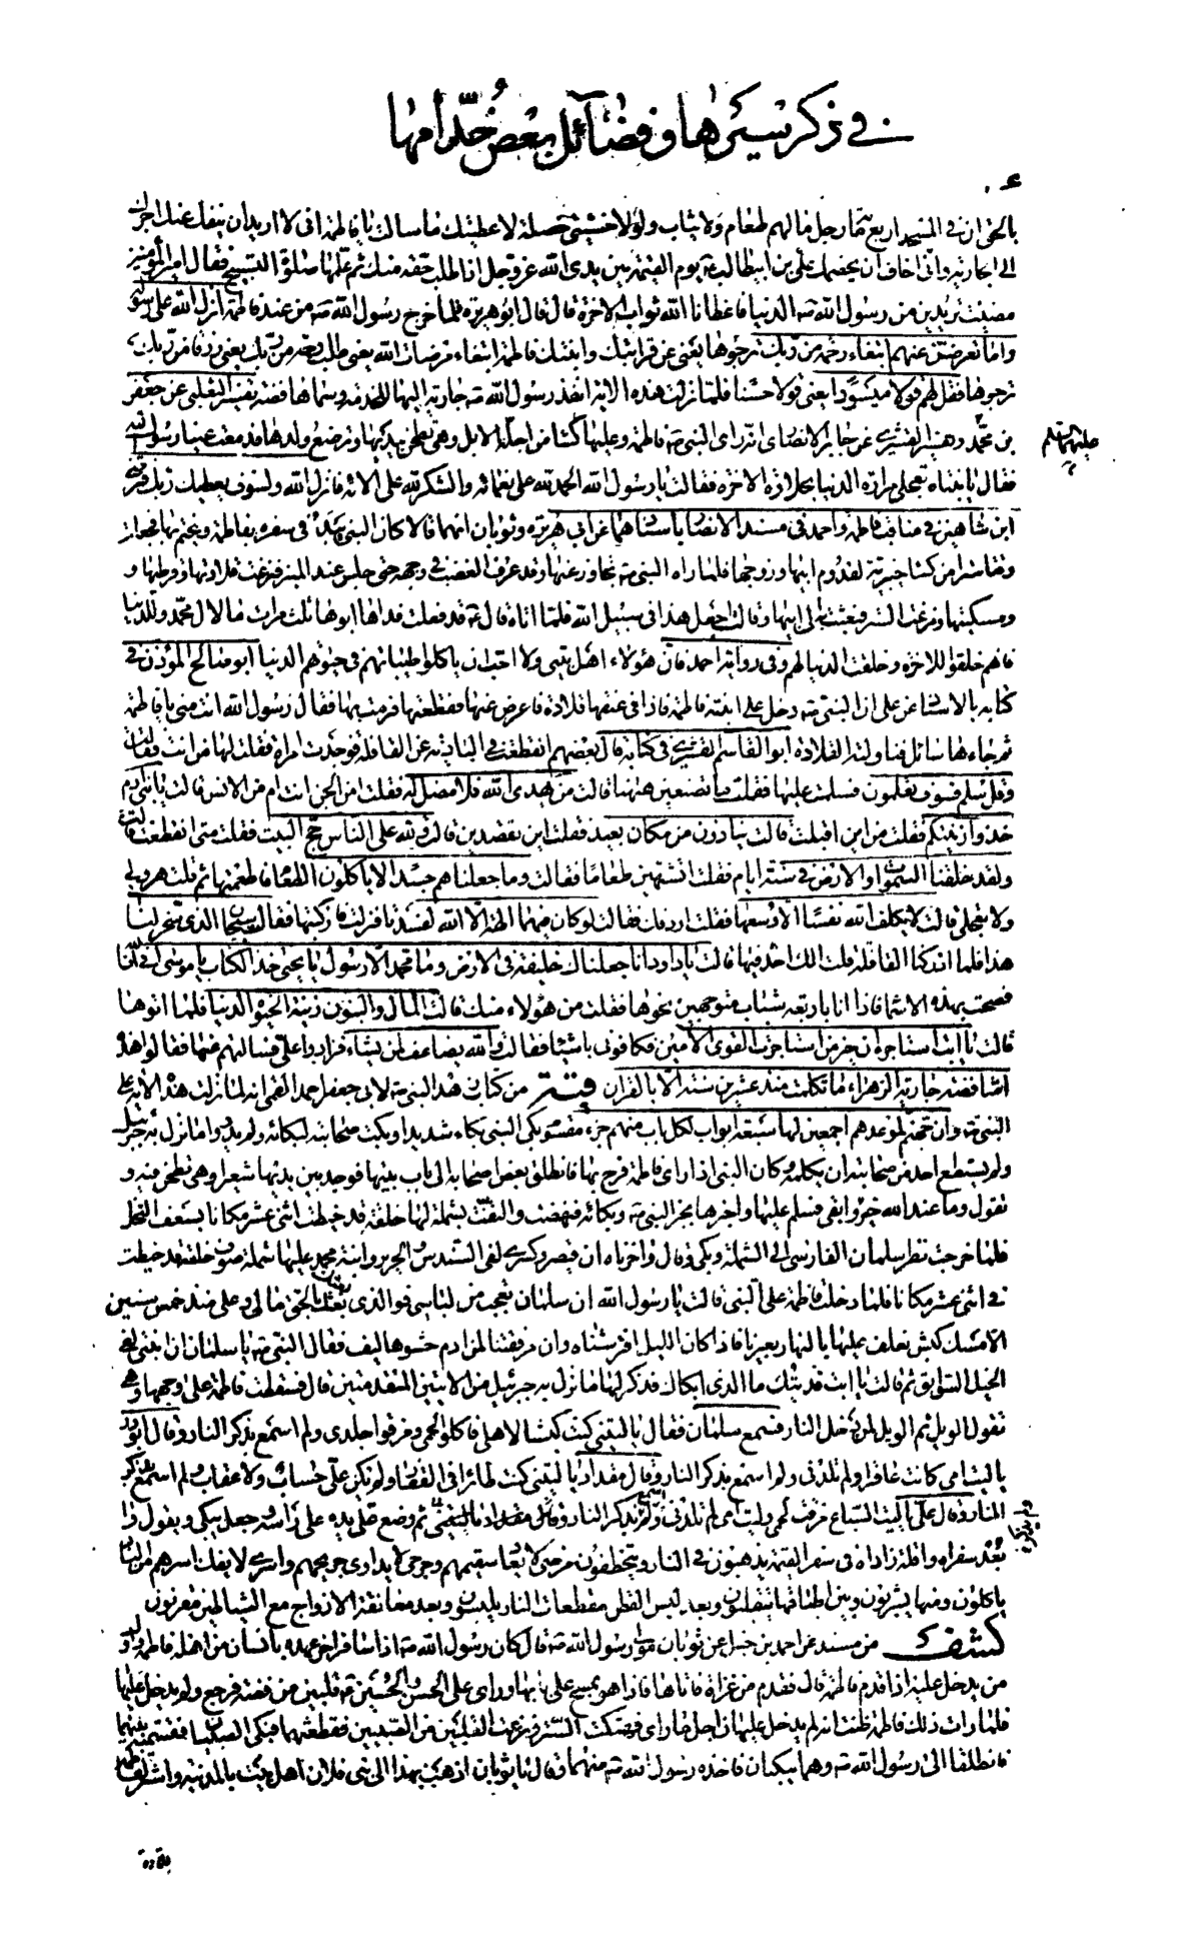 في ذكر سيرها و فضائل بعض خدّامها
بالحق ان في المسجد اربعمائة رجل ما لهم طعام ولا ثياب ولولا خشيتي خصلة لاعطيتك ما سالت يا فاطمة اني لا اريد ان ينفك عنك اجرك
الى الجارية واني اخاف ان يخصمك علي بن ابيطالب ع يوم القيمة بين يدي الله عز وجل اذا طلب حقه منك ثم علمها صلوة التسبيح فقال امير المؤمنين
مضيت تريدين من رسول الله ص الدنيا فاعطانا الله ثواب الاخرة قال قال ابو هريرة فلما خرج رسول الله ص من عند فاطمة انزل الله على رسوله
واما تعرضن عنهم ابتغاء رحمة من ربك ترجوها يعني عن قرابتك وابنتك فاطمة ابتغاء مرضات الله يعني طلب رحمة من ربك يعني رزقا من ربك
ترجوها فقل لهم قولا ميسورا يعني قولا حسنا فلما نزلت هذه الاية انفذ رسول الله ص جارية اليها للخدمة وسماها فضة تفسير الثعلبي عن جعفر
بن محمد وتفسير القشيري عن جابر الانصاري انه راى النبي ص فاطمة وعليها كساء من اجلة الابل وهي تطحن بيديها وترضع ولدها فدمعت عينا رسول الله
عليهما السلم
فقال يا بنتاه تعجلي مرارة الدنيا بحلاوة الاخرة فقالت يا رسول الله الحمد لله على نعمائه والشكر لله على الائه فانزل الله ولسوف يعطيك ربك فترضى
ابن شاهين في مناقب فاطمة واحمد في مسند الانصار باسنادهما عن ابي هريرة وثوبان انهما قالا كان النبي يبدأ في سفره بفاطمة ويختم بها فجعلت
وقتا سترا من كساء خيبرية لقدوم ابيها وزوجها فلما راه النبي ص تجاوز عنها وقد عرف الغضب في وجهه حتى جلس عند المنبر فنزعت قلادتها وقرطيها و
ومسكتيها ونزعت الستر فبعثت به الى ابيها وقالت اجعل هذا في سبيل الله فلما اتاه قال ع قد فعلت فداها ابوها ثلث مرات ما لال محمد وللدنيا
فانهم خلقوا للاخرة وخلقت الدنيا لهم وفي رواية احمد فان هؤلاء اهل بيتي ولا احب ان ياكلوا طيباتهم في حيوتهم الدنيا ابو صالح المؤذن في
كتابه بالاسناد عن علي ان النبي ص دخل على ابنته فاطمة فاذا في عنقها قلادة فاعرض عنها فقطعتها فرمت بها فقال رسول الله انت مني يا فاطمة
ثم جاءها سائل فناولته القلادة ابو القاسم القشيري في كتابه قال بعضهم انقطعت في البادية عن القافلة فوجدت امراة فقلت لها من انت فقالت
وقل سلم فسوف يعلمون فسلمت عليها فقلت ما تصنعين ههنا قالت من يهدي الله فلا مضل له فقلت امن الجن انت ام من الانس قالت يا بني ادم
خذوا زينتكم فقلت من اين اقبلت قالت ينادون من مكان بعيد فقلت اين تقصدين قالت ولله على الناس حج البيت فقلت متى انقطعت قالت
ولقد خلقنا السموات والارض في ستة ايام فقلت اتشتهين طعاما فقالت وما جعلناهم جسدا لا ياكلون الطعام فاطعمتها ثم قلت هرولي
ولا تعجلي قالت لا يكلف الله نفسا الا وسعها فقلت اردفك فقالت لو كان فيهما الهة الا الله لفسدتا فنزلت فاركبتها فقالت سبحان الذي سخر لنا
هذا فلما ادركنا القافلة قلت الك احد فيها قالت يا داود انا جعلناك خليفة في الارض وما محمد الا رسول يا يحيى خذ الكتاب يا موسى اني انا الله
فصحت بهذه الاسماء فاذا انا باربعة شباب متوجهين نحوها فقلت من هؤلاء منك قالت المال والبنون زينة الحيوة الدنيا فلما اتوها
قالت يا ابت استاجره ان خير من استاجرت القوي الامين فكافوني باشياء فقالت والله يضاعف لمن يشاء فزادوا علي فسالتهم عنها فقالوا هذه
امنا فضة جارية الزهراء ما تكلمت منذ عشرين سنة الا بالقران من كتاب زهد النبي ص لابي جعفر احمد القمي انه لما نزلت هذه الاية على
النبي ص وان جهنم لموعدهم اجمعين لها سبعة ابواب لكل باب منهم جزء مقسوم بكى النبي بكاء شديدا وبكت صحابته لبكائه ولم يدروا ما نزل به جبرئيل
ولم يستطع احد من صحابته ان يكلمه وكان النبي اذا راى فاطمة فرح بها فانطلق بعض اصحابه الى باب بيتها فوجد بين يديها شعيرا وهي تطحن فيه و
تقول وما عند الله خير وابقى فسلم عليها واخبرها بخبر النبي ص وبكائه فنهضت والتفت بشملة لها خلقة قد خيطت اثنى عشر مكانا بسعف النخل
فلما خرجت نظر سلمان الفارسي الى الشملة وبكى وقال واحزناه ان قيصر وكسرى لفي السندس والحرير وابنة محمد عليها شملة صوف خلقة قد خيطت
في اثنى عشر مكانا فلما دخلت فاطمة على النبي قالت يا رسول الله ان سلمان تعجب من لباسي فوالذي بعثك بالحق ما لي ولعلي منذ خمس سنين
الا مسك كبش نعلف عليها بالنهار بعيرنا فاذا كان الليل افترشناه وان مرفقتنا لمن ادم حشوها ليف فقال النبي ص يا سلمان ان ابنتي لفي
الخيل السوابق ثم قالت يا ابت فديتك ما الذي ابكاك فذكر لها ما نزل به جبرئيل من الايتين المتقدمتين قال فسقطت فاطمة على وجهها وهي
تقول الويل ثم الويل لمن دخل النار فسمع سلمان فقال يا ليتني كنت كبشا لاهلي فاكلوا لحمي ومزقوا جلدي ولم اسمع بذكر النار وقال ابوذر
يا ليت امي كانت عاقرا ولم تلدني ولم اسمع بذكر النار وقال مقداد يا ليتني كنت طائرا في القفار ولم يكن علي حساب ولا عقاب ولم اسمع بذكر
النار وقال علي يا ليت السباع مزقت لحمي وليت امي لم تلدني ولم اسمع بذكر النار ثم وضع علي يده على راسه وجعل يبكي ويقول وا
بعد سفراه وا قلة زاداه في سفر القيمة يذهبون في النار ويتخطفون مرضى لا يعاد سقيمهم وجرحى لا يداوى جريحهم واسرى لا يفك اسرهم من النار
ياكلون ومنها يشربون وبين اطباقها يتقلبون وبعد لبس القطن مقطعات النار يلبسون وبعد معانقة الازواج مع الشياطين مقرنون
كشف من مسند احمد بن حنبل عن ثوبان مولى رسول الله ص قال كان رسول الله ص اذا سافر اخر عهده بانسان من اهله فاطمة واول
من يدخل عليه اذا قدم فاطمة قال فقدم من غزاة فاتاها فاذا هو بمسح على بابها وراى على الحسن والحسين ع قلبين من فضة فرجع ولم يدخل عليها
فلما رات ذلك فاطمة ظنت انه لم يدخل عليها من اجل ما راى فهتكت الستر ونزعت القلبين من الصبيين فقطعتهما فبكى الصبيان فقسمته بينهما
فانطلقا الى رسول الله ص وهما يبكيان فاخذه رسول الله ص منهما وقال يا ثوبان اذهب بهذا الى بني فلان اهل بيت بالمدينة واشتر لفاطمة
قلادة